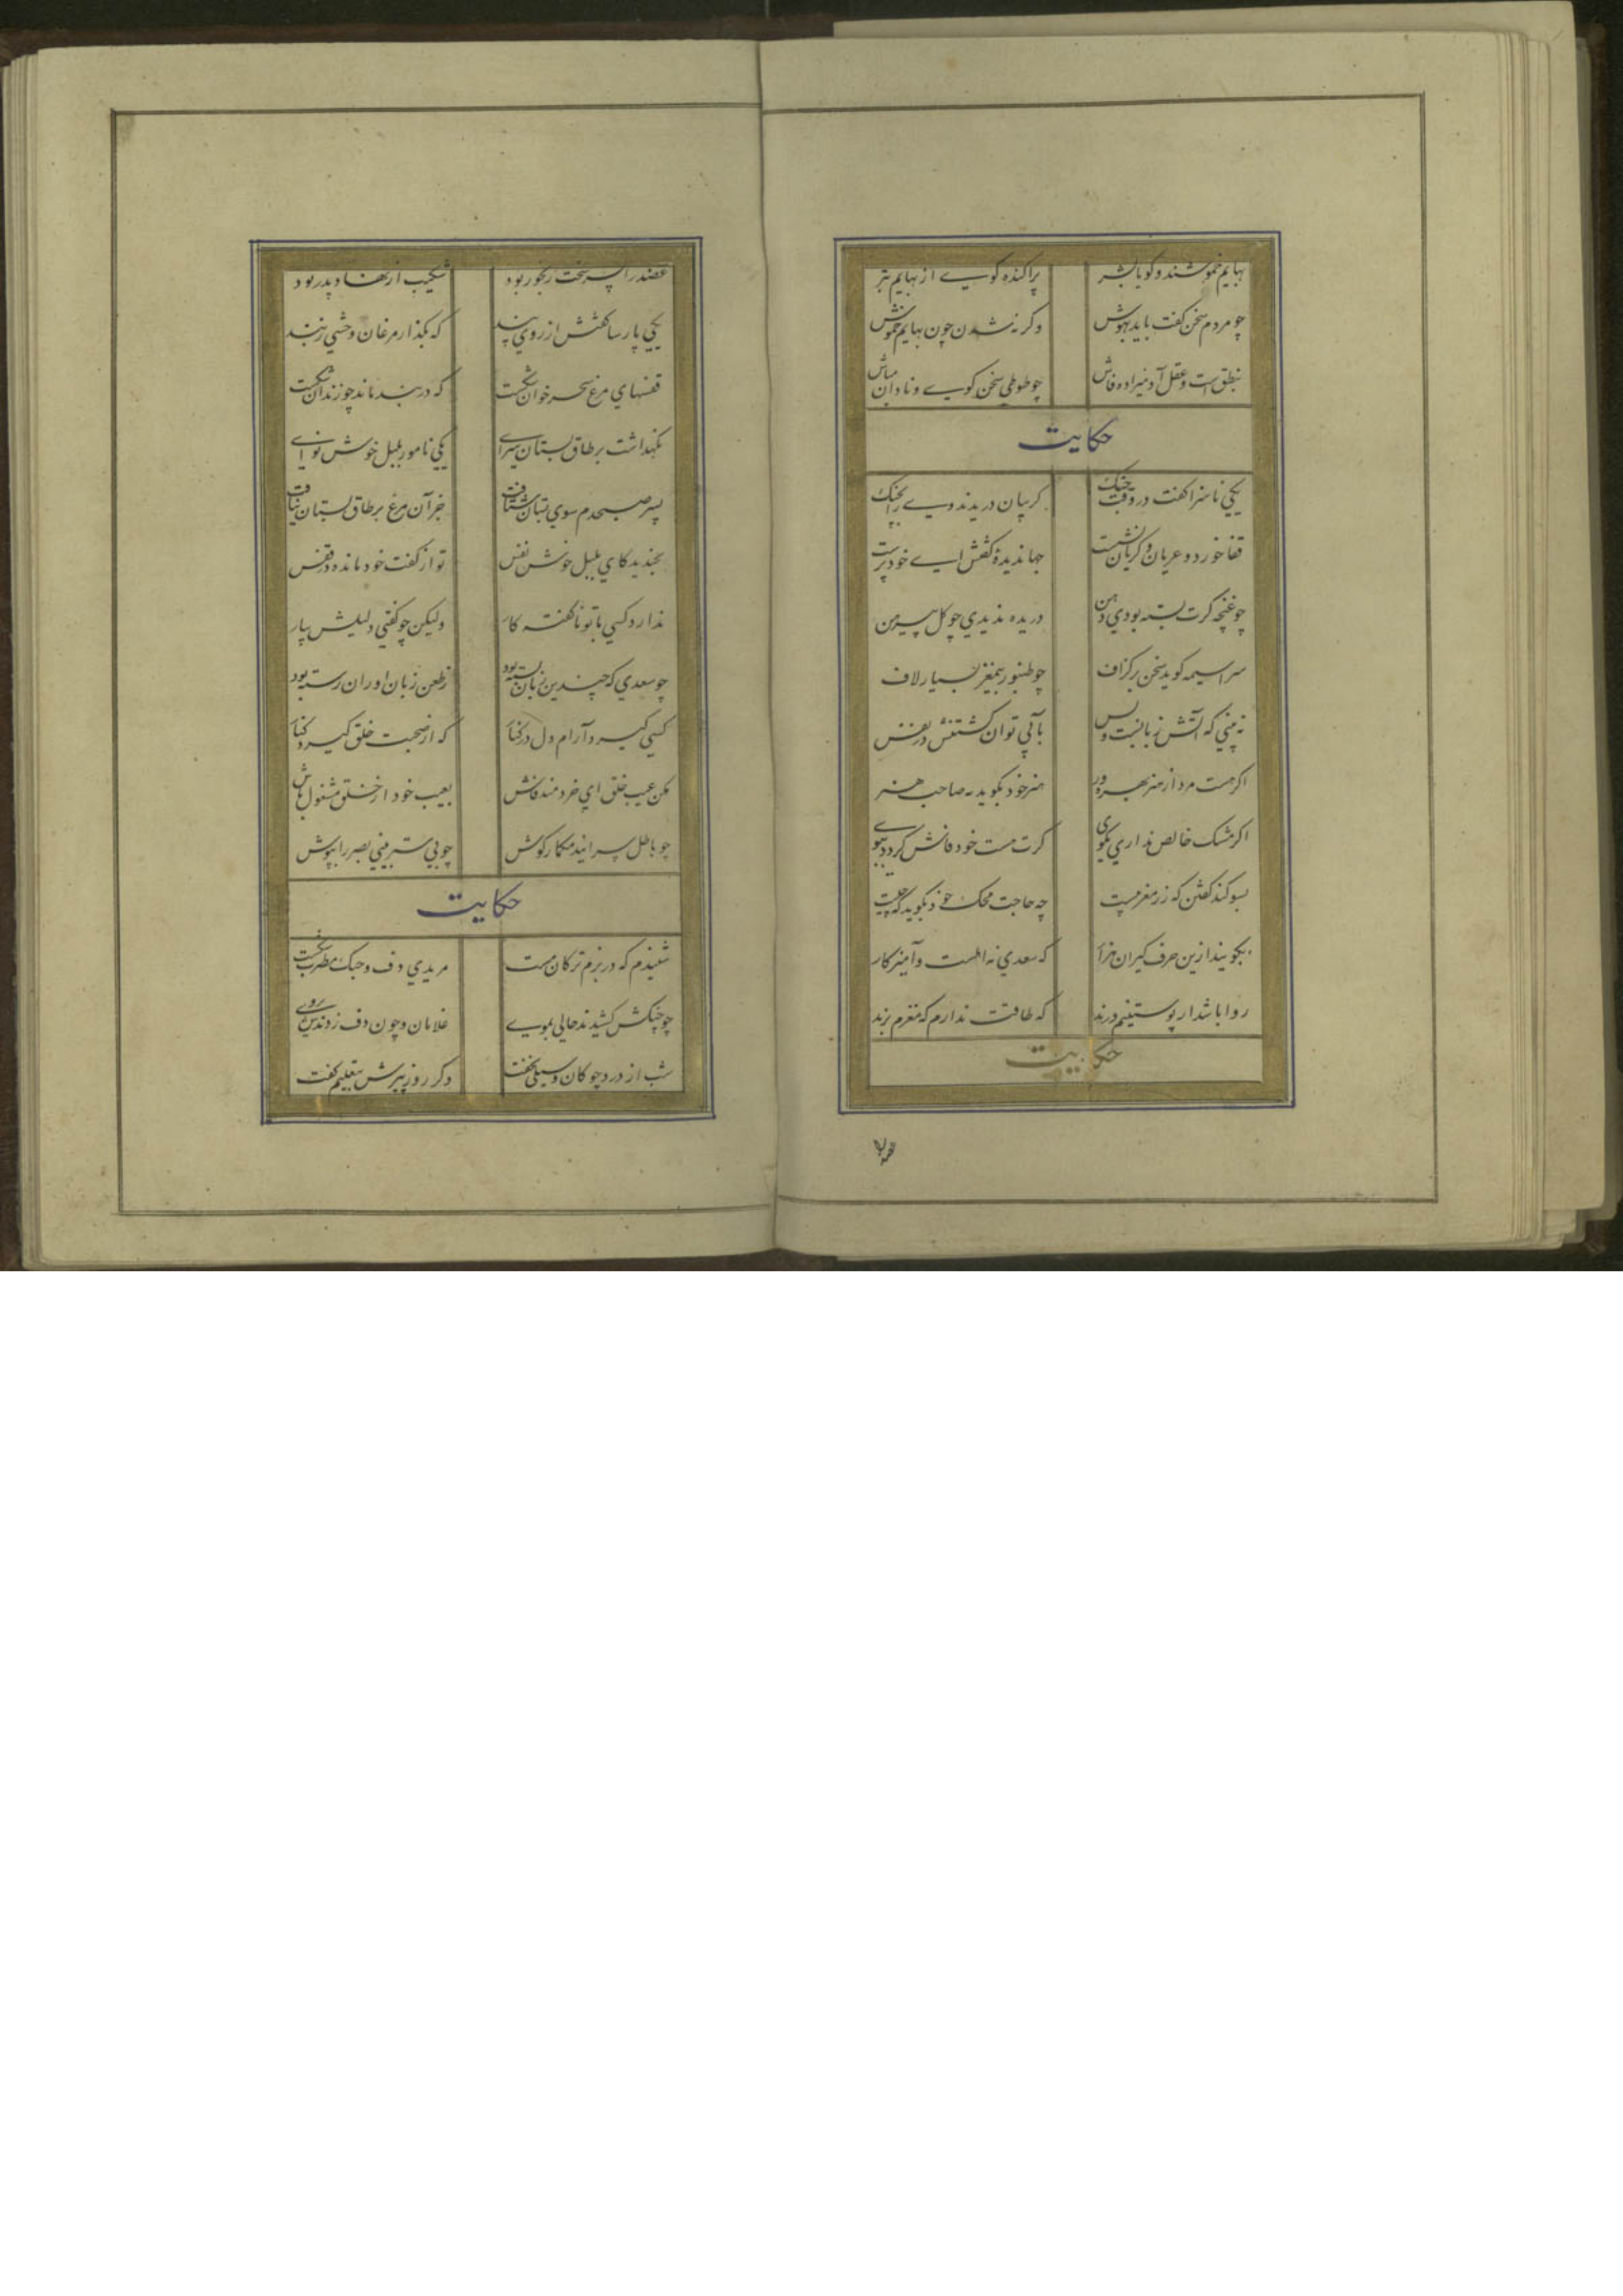 بهایم خموشند و گویا بشر پراکنده گوی از بهایم بتر
چو مردم سخن گفت باید بهوش وگرنه شدن چون بهایم خموش
بنطق است و عقل آدمیزاده فاش چو طوطی سخن گوی و نادان مباش
حکایت
یکی ناسزا گفت در وقت جنگ گریبان دریدند وی را بچنگ
قفا خورد و عریان و گریان نشست جهاندیدهٔ گفتش ای خودپرست
چو غنچه گرت بسته بودی دهن دریده ندیدی چو گل پیرهن
سراسیمه گوید سخن بر گزاف چو طنبور بیمغز بسیار لاف
نه بینی که آتش زبانست و بس بآبی توان کشتنش در نفس
اگر هست مرد از هنر بهره ور هنر خود بگوید نه صاحب هنر
اگر مشک خالص نداری مگوی گرت هست خود فاش گردد ببوی
بسوگند گفتن که زر مغربیست چه حاجت محک خود بگوید که چیست
بگویند ازین حرف گیران هزار که سعدی نه اهلست و آمیزگار
روا باشد ار پوستینم درند که طاقت ندارم که مغزم برند
حکایت
عضد
عضد را پسر سخت رنجور بود شکیب از نهاد پدر دور بود
یکی پارسا گفتش از روی پند که بگذار مرغان وحشی ز بند
قفسهای مرغ سحرخوان شکست که در بند ماند چو زندان شکست
نگهداشت بر طاق بستان سرای یکی نامور بلبل خوش نوای
پسر صبحدم سوی بستان شتافت جز آن مرغ بر طاق بستان نیافت
بخندید کای بلبل خوش نفس تو از گفت خود مانده در قفس
ندارد کسی با تو ناگفته کار ولیکن چو گفتی دلیلش بیار
چو سعدی که چندین زبان بسته بود ز طعن زبان اوران رسته بود
کسی گیرد آرام دل در کنار که از صحبت خلق گیرد کنار
مکن عیب خلق ای خردمند فاش بعیب خود از خلق مشغول باش
چو باطل سرایند مگمار گوش چو بی ستر بینی بصر را بپوش
حکایت
شنیدم که در بزم ترکان مست مریدی دف و چنگ مطرب شکست
چو چنگش کشیدند حالی بموی غلامان و چون دف زدندش بروی
شب از درد چوگان و سیلی نخفت دگر روز پیرش بتعلیم گفت